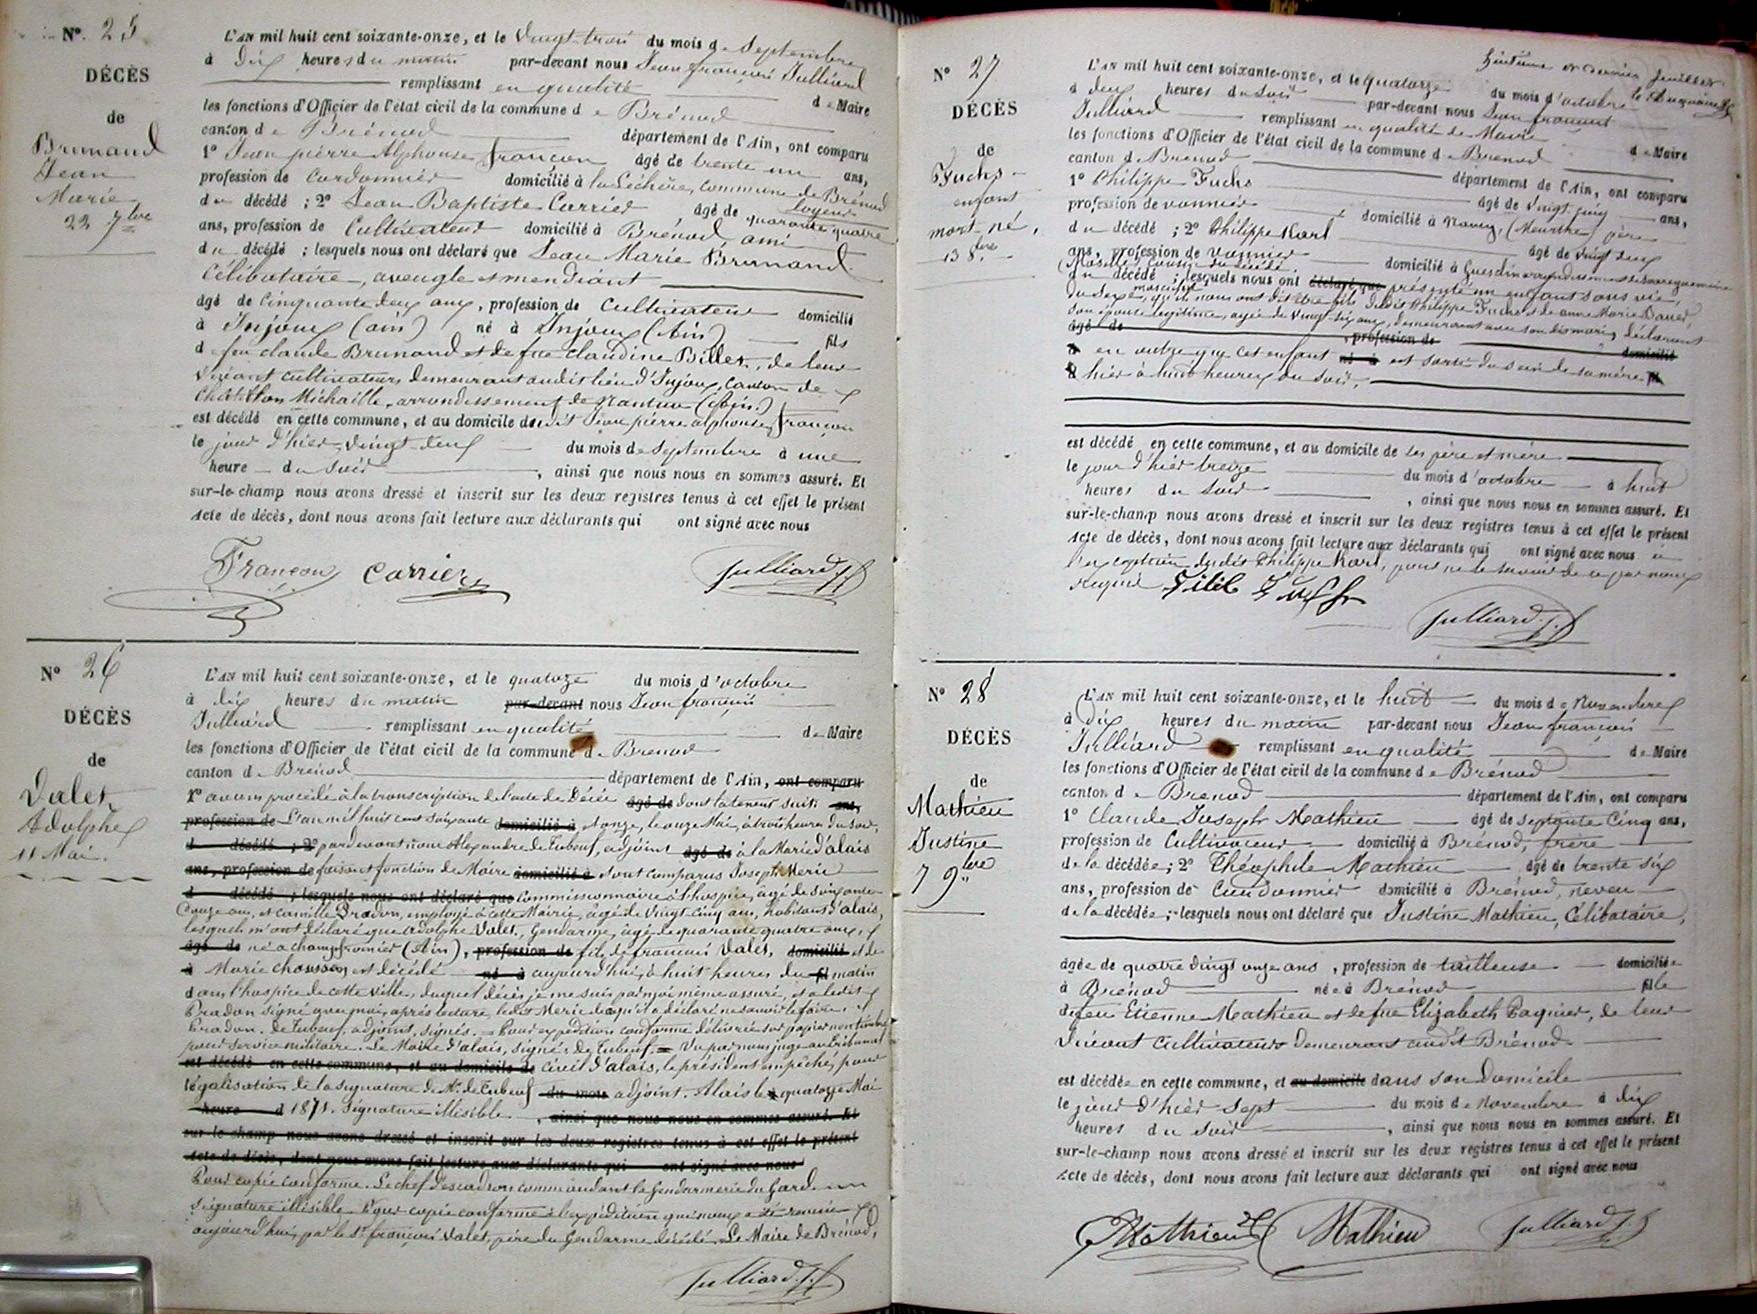 N° 25
DÉCÈS
de
Brunand
Jean
Marie
22 7bre
L'AN mil huit cent soixante-onze, et le vingt-trois du mois de Septembre
à Dix heures du matin par-devant nous Jean françois Julliard
remplissant en qualité de Maire
les fonctions d'Officier de l'état civil de la commune de Brénod
canton de Brénod département de l'Ain, ont comparu
1° Jean pierre Alphonse françon âgé de trente un ans,
profession de Cordonnier domicilié à la Léchère, commune de Brénod
Logeur
du décédé ; 2° Jean Baptiste Carrier, âgé de quarante quatre
ans, profession de Cultivateur domicilié à Brénod ami
du décédé ; lesquels nous ont déclaré que Jean Marie Brunand
Célibataire, aveugle et mendiant
âgé de Cinquante deux ans, profession de Cultivateur domicilié
à Injoux (ain) né à Injoux (Ain) fils
de feu claude Brunand et de fue claudine Billet, de leur
vivant cultivateurs demeurant audit lieu d'Injoux, Canton de
Châtillon Michaille, arrondissement de Nantua (Ain)
est décédé en cette commune, et au domicile dudit Jean pierre alphonse françon
le jour d'hier vingt-deux du mois de Septembre à une
heure du soir, ainsi que nous nous en sommes assuré. Et
sur-le-champ nous avons dressé et inscrit sur les deux registres tenus à cet effet le présent
acte de décès, dont nous avons fait lecture aux déclarants qui ont signé avec nous
Françon Carrier Julliard J. f
N° 26
DÉCÈS
de
Valet
Adolphe
11 Mai.
L'AN mil huit cent soixante-onze, et le quatorze du mois d'octobre
à dix heures du matin par-devant nous Jean françois
Julliard remplissant en qualité de Maire
les fonctions d'Officier de l'état civil de la commune de Brenod
canton de Brénod département de l'Ain, ont comparu
1° avons procédé à la transcription de l'acte de Décès âgé de dont la teneur suit: ans,
profession de L'an mil huit cent soixante domicilié à et onze, le onze Mai, à trois heures du soir,
d décédé ; 2° par devant nous Alexandre de Tubeuf, adjoint âgé de à la Mairie d'alais
ans, profession de faisant fonction de Maire domicilié à sont comparus Joseph Merie
d décédé ; lesquels nous ont déclaré que Commissionnaire à l'hospice, âgé de Soixante
Douze ans, et camille Pradon, employé à cette Mairie, âgé de Vingt Cinq ans, habitans d'alais,
lesquels m'ont déclaré que adolphe Valet, Gendarme, âgé de quarante quatre ans,
âgé de né à champfromier (Ain), profession de fils de françois Valet, domicilié et de
à Marie chousson est décédé né à aujourd'hui, à huit heures du fil matin
dans l'hospice de cette ville, duquel décès je me suis par moi même assuré, et a ledit
Pradon signé avec moi, après lecture, ledit Merie a déclaré ne savoir le faire.
Pradon. de Tubeuf, adjoint, signés. = Pour expédition conforme délivrée sur papier non timbré
pour service militaire. Le Maire d'alais, signé: de Tubeuf. = Vu par nous juge au Tribunal
est décédé en cette commune, et au domicile de civil d'alais, le président empêché, pour
légalisation de la signature de Mr. de Tubeuf du mois adjoint. Alais le quatorze Mai
heure d 1871. Signature illisible, ainsi que nous nous en sommes assuré. Et
sur-le-champ nous avons dressé et inscrit sur les deux registres tenus à cet effet le présent
acte de décès, dont nous avons fait lecture aux déclarants qui ont signé avec nous
Pour copie conforme. Le chef d'escadron commandant la Gendarmerie du Gard
signature illisible. Pour copie conforme à l'expédition qui nous a été remise
aujourd'hui par le Sr françois Valet, père du Gendarme décédé. Le Maire de Brénod,
Julliard J. f
N° 27
DÉCÈS
de
Fuchs
enfant
mort né,
13 8bre
huitième et dernier feuillet
L'AN mil huit cent soixante-onze, et le quatorze du mois d'octobre
à deux heures du soir par-devant nous Jean françois
Julliard remplissant en qualité de Maire de Maire
les fonctions d'Officier de l'état civil de la commune de Brenod
canton de Brenod département de l'Ain, ont comparu
1° Philippe Fuchs âgé de vingt cinq ans,
profession de vannier domicilié à Nancy, (Meurthe) père
du décédé ; 2° Philippe Karl âgé de vingt deux
ans, profession de vannier domicilié à
(Moselle) Cousin du décédé.
du décédé ; lesquels nous ont déclaré que présenté un enfant sans vie,
du sexe masculin, qu'ils nous ont dit être fils dudit Philippe Fuchs et de anne Marie Bauer,
son épouse légitime, agée de Vingt six ans, demeurant avec son dit mari, déclarant
âgé de, profession de domicilié
à en outre que cet enfant né à est sorti du sein de sa mère fil
d hier à huit heures du soir,
est décédé en cette commune, et au domicile de ses père et mère
le jour d'hier treize du mois d'octobre à huit
heures du soir, ainsi que nous nous en sommes assuré. Et
sur-le-champ nous avons dressé et inscrit sur les deux registres tenus à cet effet le présent
acte de décès, dont nous avons fait lecture aux déclarants qui ont signé avec nous à
l'exception dudit Philippe Karl, pour ne le savoir de ce par nous
requis Julliard J. f
N° 28
DÉCÈS
de
Mathieu
Justine
7 9bre
L'AN mil huit cent soixante-onze, et le huit du mois de Novembre
à Dix heures du matin par-devant nous Jean françois
Julliard remplissant en qualité de Maire
les fonctions d'Officier de l'état civil de la commune de Brénod
canton de Brenod département de l'Ain, ont comparu
1° Claude Joseph Mathieu âgé de septante Cinq ans,
profession de Cultivateur domicilié à Brénod, frère
de la décédée ; 2° Théophile Mathieu âgé de trente six
ans, profession de Cordonnier domicilié à Brénod, neveu
de la décédée ; lesquels nous ont déclaré que Justine Mathieu, Célibataire,
âgée de quatre vingt onze ans, profession de tailleuse domiciliée
à Brénod née à Brénod fille
de feu Etienne Mathieu et de fue Elizabeth Pagnier, de leur
vivant Cultivateurs demeurant audit Brénod
est décédée en cette commune, et au domicile dans son Domicile
le jour d'hier sept du mois de Novembre à dix
heures du soir, ainsi que nous nous en sommes assuré. Et
sur-le-champ nous avons dressé et inscrit sur les deux registres tenus à cet effet le présent
acte de décès, dont nous avons fait lecture aux déclarants qui ont signé avec nous
Mathieu Mathieu Julliard J. f